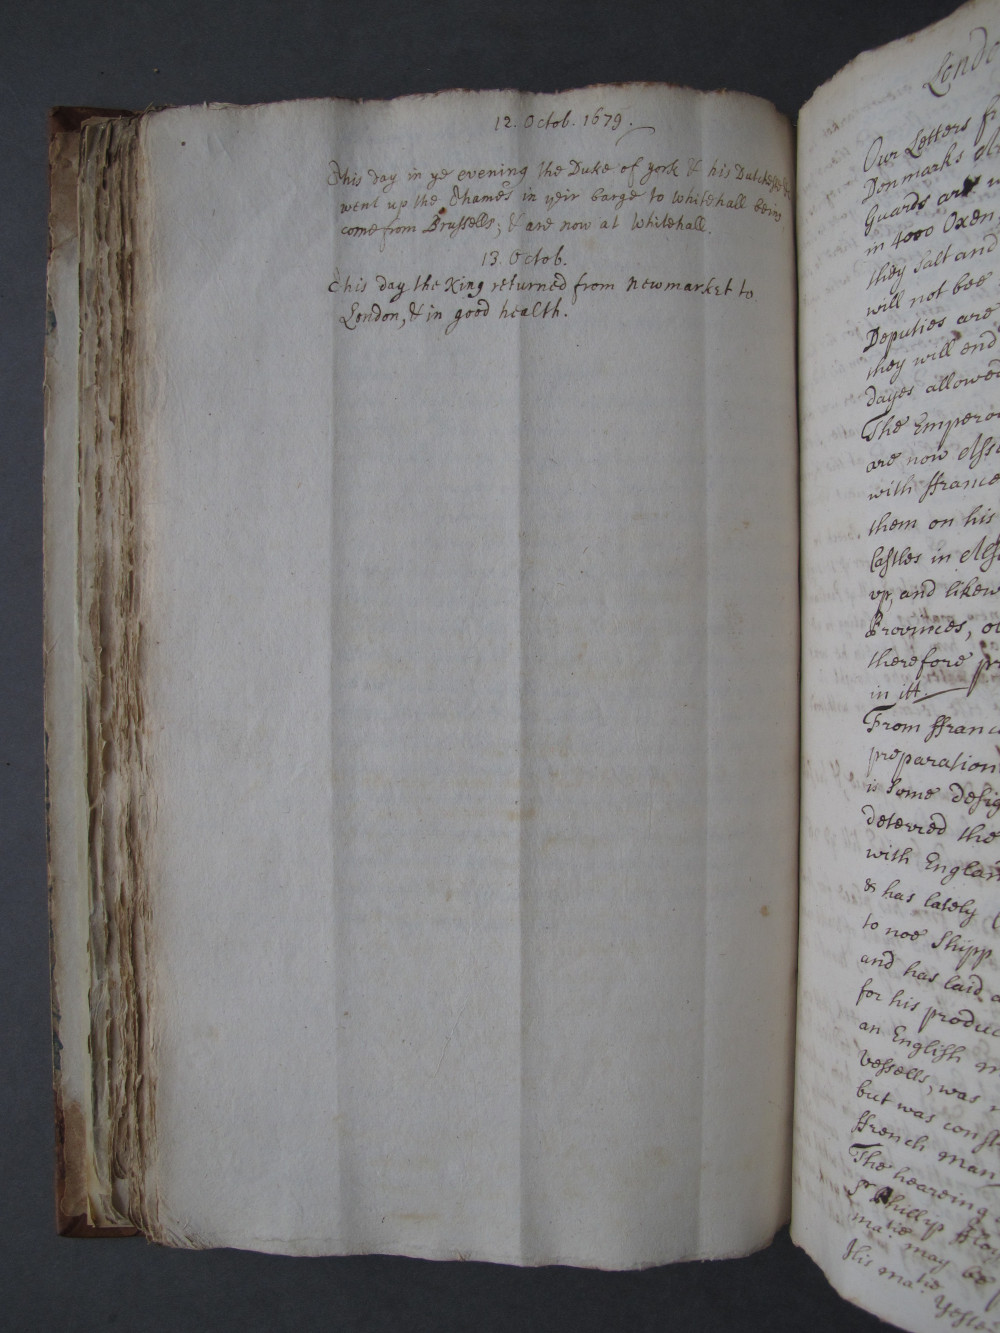 12. Octob. 1679.
This day in ye evening the Duke of york & his Dutchesse
went up the Thames in yeir barge to whitehall being
come from Brussells; & are now at whitehall.
13. Octob.
This day the King returned from newmarket to
London, & in good health.
Our Letters
Denmarks
Guards are
in 4000 Oxen,
they salt and
will not bee
Deputies are
they will end
dayes allowed
The Emperor
are now
with ffrance
them on his
Castles in
vp, and likew
Provinces,
therefore
in itt
From ffrance
preparation
is some desig
deterred the
with England
& has lately
to noe Shipp
and has laid
for his
an English
vessells, was
but was
ffrench man
The heareing
Sr Phillip
matie may be
His matie yester